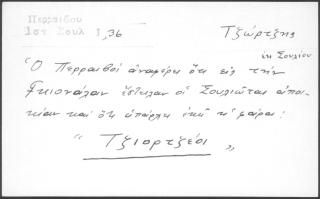 Περραιβου
Ιστ Σουλ Ι, 36
Τζώρτζης
ἐκ Σουλίου
"Ὁ Περραιβὸς ἀναφέρει ὅτι εἰς τὴν
ἔστειλαν οἱ Σουλιῶται ἀποι-
κίαν καὶ ὅτι ὑπάρχει ἐκεῖ ἡ φάρα:
"Τζιορτζέοι"